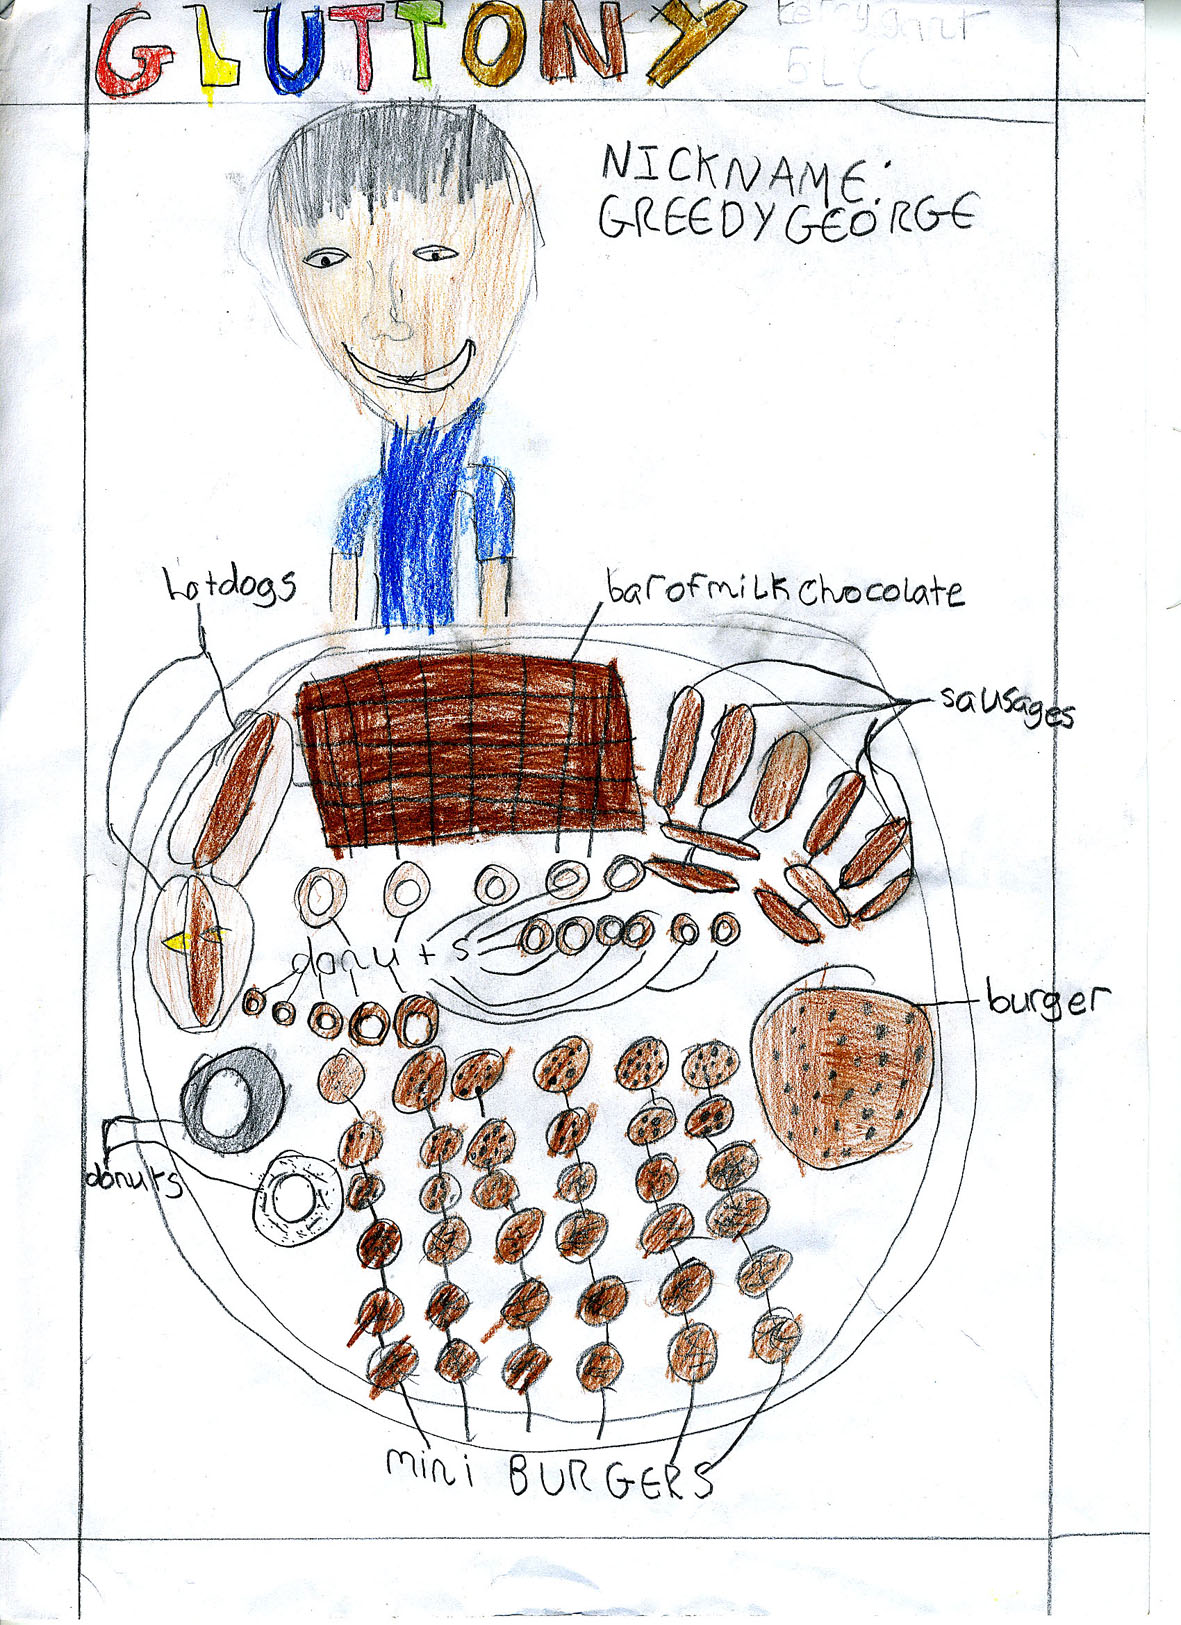 GLUTTONY
5LC
NICKNAME:
GREEDY GEORGE
hotdogs
bar of milk chocolate
sausages
donuts
burger
donuts
mini BURGERS